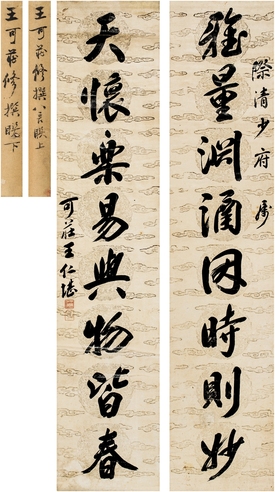 際清少府属
雅量淵涵因時則妙
天懷樂易與物皆春
可莊王仁堪
王可莊修撰八言聯上
王可莊修撰聯下